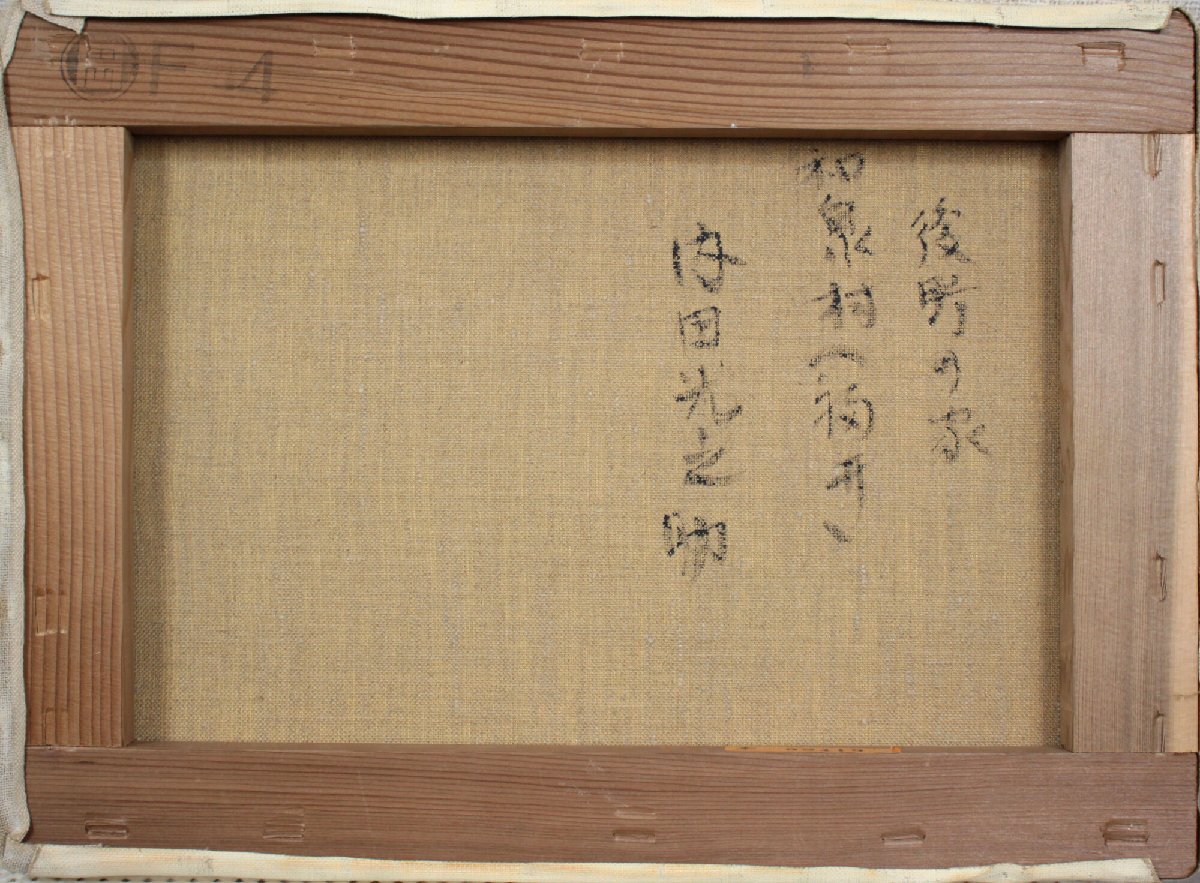 F4
後野の家
和泉村(福井)
内田光之助